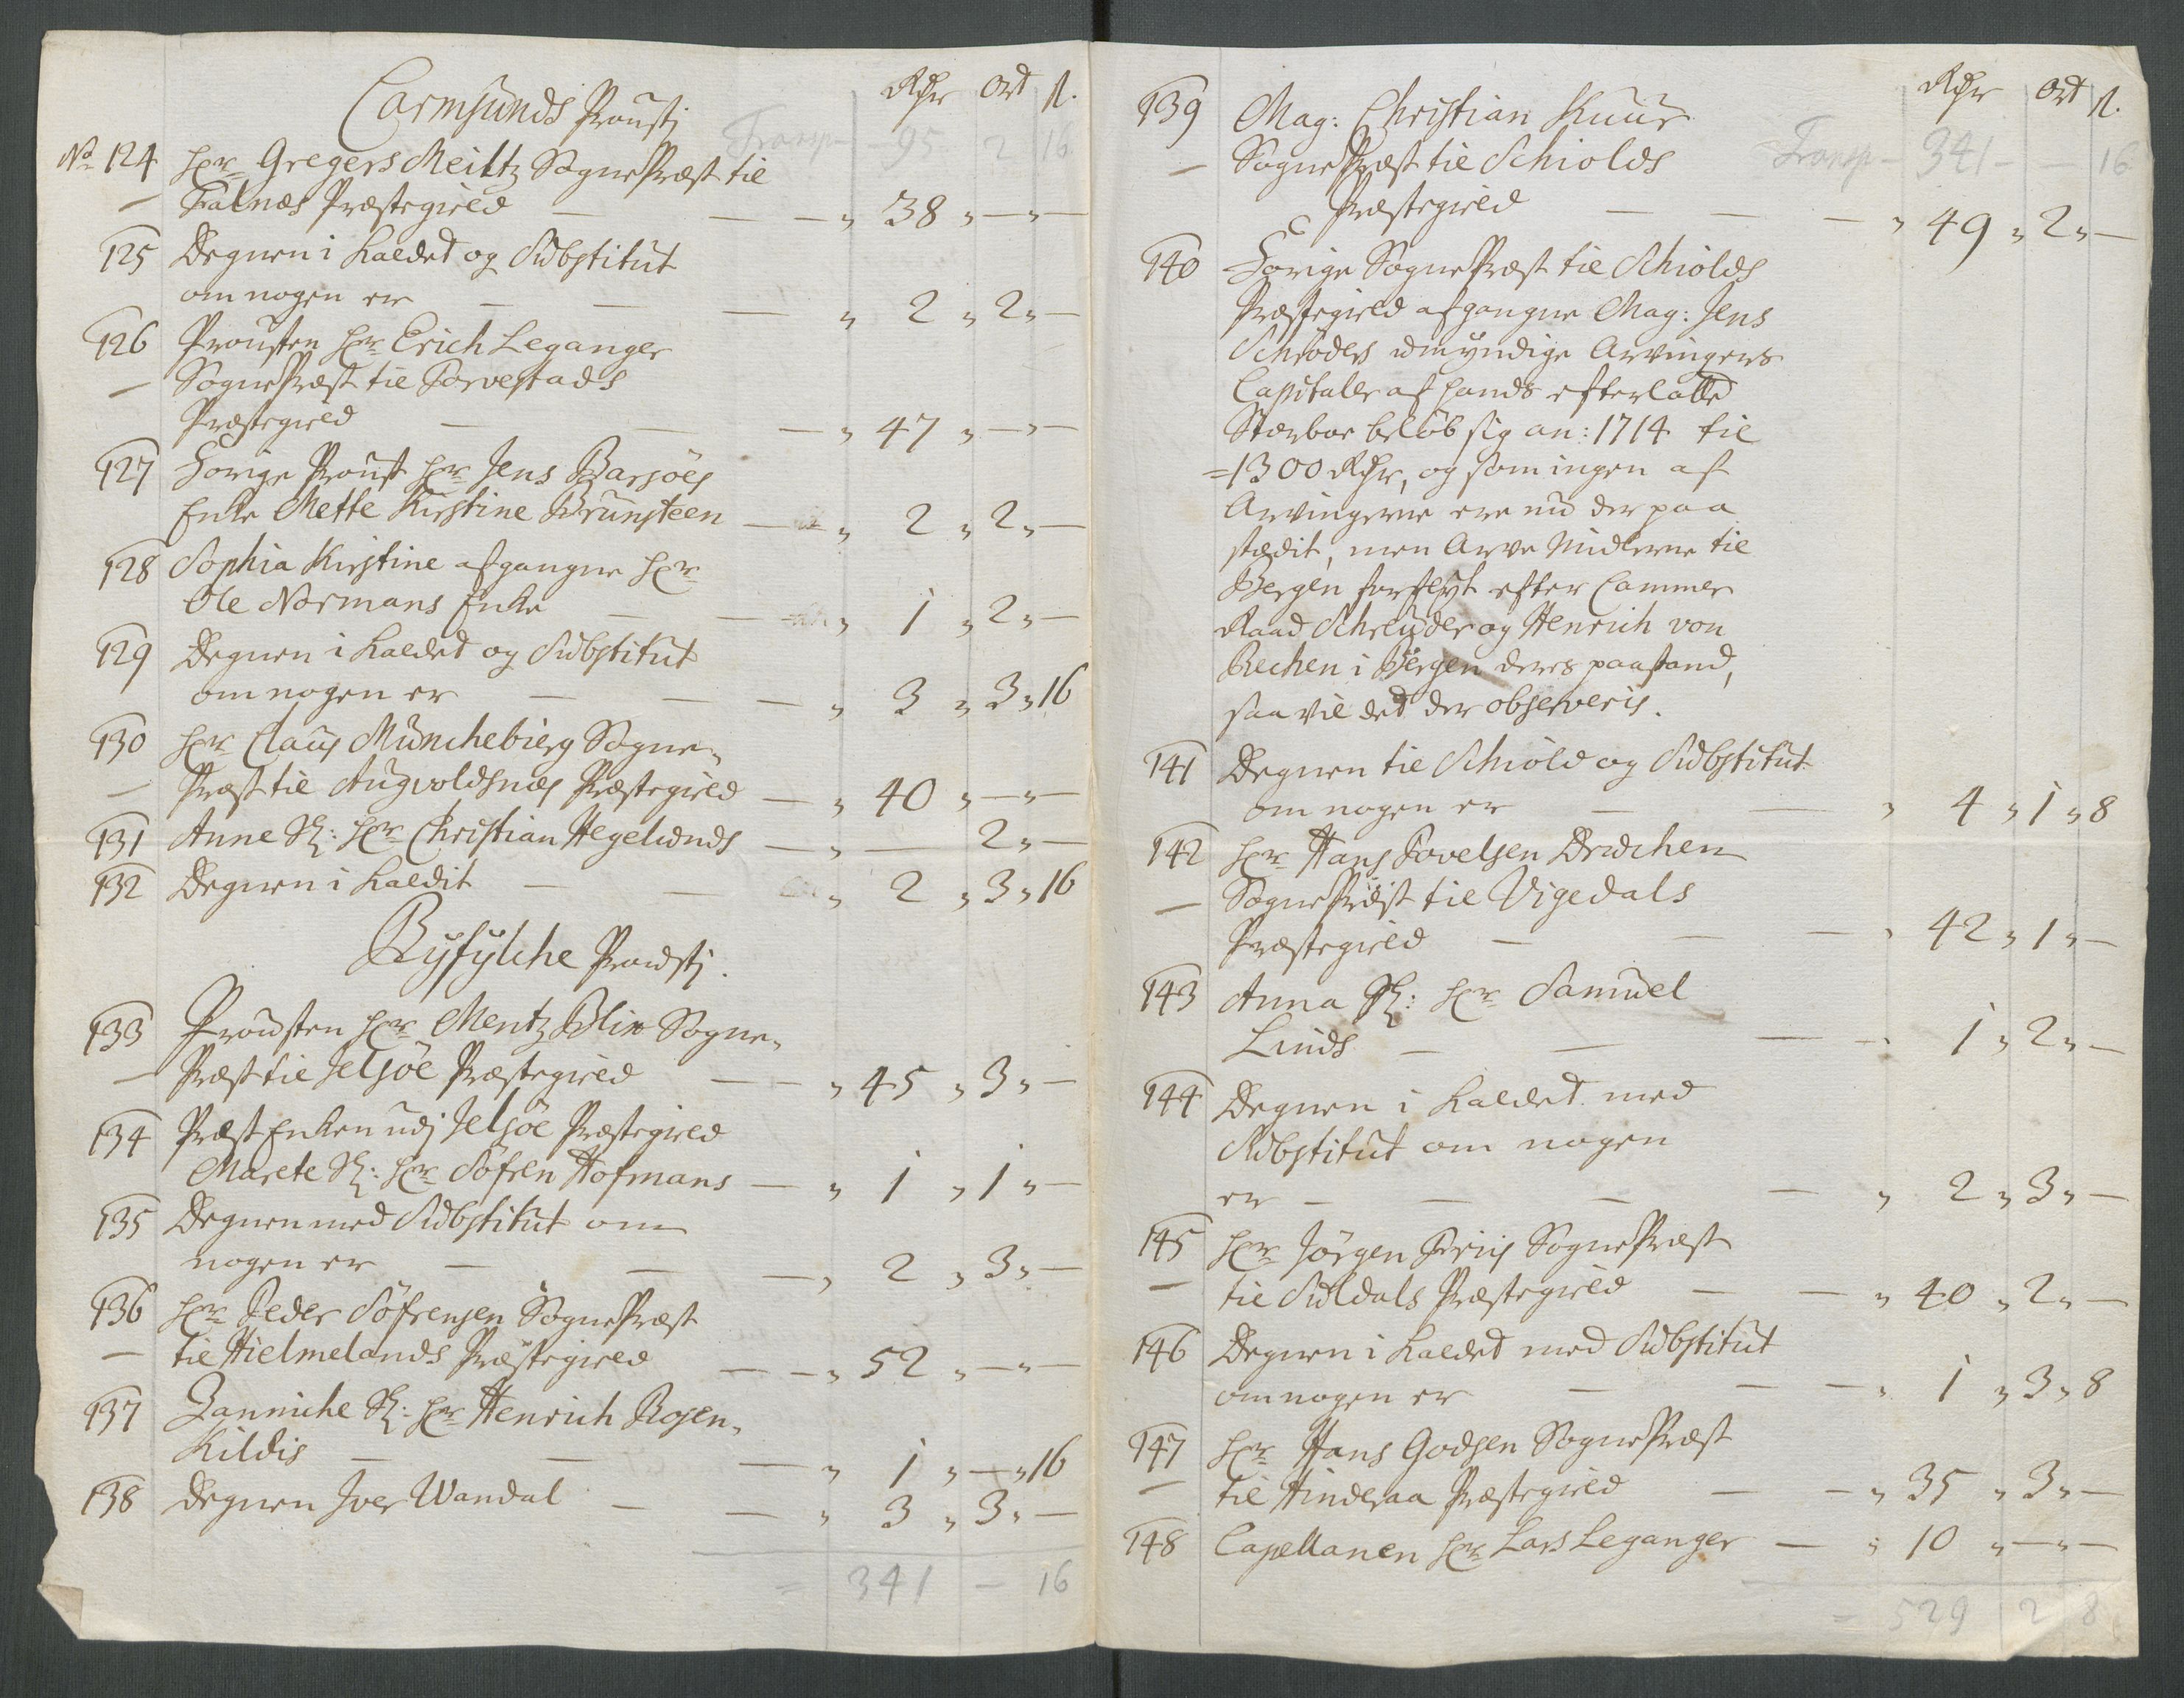 Carmsunds Proustj
Rdr Ort ß.
Transp 95 2 16
No 124 Hr Gregers Meiltz SognePræst til
Falnæs Præstegield — — — „ 38 „ — „ —
125 Degnen i Kaldet og Substitut
om nogen er — — — „ 2 „ 2 „ —
126 Prousten Hr Erich Leganger
SognePræst til Torvestads
Præstegield — — — „ 47 „ — „ —
127 Forige Proust Hr Jens Barsøes
Enke Mette Kirstine Brunsteen — „ 2 „ 2 „ —
128 Sophia Kirstine afgangne Hr
Ole Normans Enke — — „ 1 „ 2 „ —
129 Degnen i Kaldet og Substitut
om nogen er — — — „ 3 „ 3 „ 16
130 Hr Claus Münchebierg Sogne„
Præst til Augvoldsnæs Præstegield — „ 40 „ — „ —
131 Anne Sl: Hr Christian Hegelunds — „ — 2 „ —
132 Degnen i Kaldit — — „ 2 „ 3 „ 16
Ryfylche Proustj.
133 Prousten Hr Mentz Blix Sogne„
Præst til Jelsøe Præstegield — — „ 45 „ 3 „ —
134 Præst Enken udj Jelsøe Præstegield
Marete Sl: Hr Söfren Hofmans — „ 1 „ 1 „ —
135 Degnen med Substitut om
nogen er — — — „ 2 „ 3 „ —
136 Hr Peder Söfrensen SognePræst
til Hielmelands Præstegield — — „ 52 „ — „ —
137 Janniche Sl: Hr Henrich Rosen„
Kildis — — — „ 1 „ — „ 16
138 Degnen Iver Wandal — — „ 3 „ 3 „ —
= 341 — 16
Rdr Ort ß.
139 Mag: Christian Kuur
SognePræst til Schiolds Transp — 341 — 16
Præstegield — — — „ 49 „ 2 „ —
140 Forige SognePræst til Schiolds
Præstegield afgangne Mag: Jens
Schröders umyndige Arvingers
Capitaler af hands efterlatte
Stærboe beløb sig an: 1714 til
= 1300 Rdr, og som ingen af
Arvingerne ere nu der paa
stædit, men Arve Midlerne til
Bergen forflyt efter Cammer
Raad Schreuder og Henrich von
Rechen i Bergen deres paastand,
saa vil det der observeris.
141 Degnen til Schiold og Substitut
om nogen er — — „ 4 „ 1 „ 8
142 Hr Hans Povelsen Druchen
SognePræst til Vigedals
Præstegield — — — „ 42 „ 1 „ —
143 Anna Sl: Hr Samuel
Linds — — — „ 1 „ 2 „ —
144 Degnen i Kaldet med
Substitut om nogen
er — — — — „ 2 „ 3 „ —
145 Hr Jörgen Friis SognePræst
til Suldals Præstegield — — „ 40 „ 2 „ —
146 Degnen i Kaldet med Substitut
om nogen er — — — „ 1 „ 3 „ 8
147 Hr Hans Godsen SognePræst
til Hinderaa Præstegield — — „ 35 „ 3 „ —
148 Capellanen Hr Lars Leganger — „ 10 „ — „ —
= 529 2 8